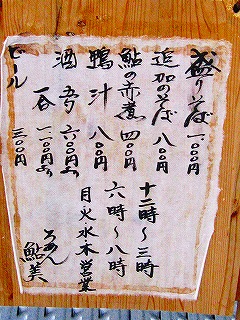 盛りそば 一、〇〇〇円
追加のそば 八〇〇円
鮎の赤煮 四〇〇円
鴨汁 八〇〇円
酒 五勺 六〇〇円より
一合 一一〇〇円より
ビール 三〇〇円
十二時〜三時
六時〜八時
月火水木営業
鮎美